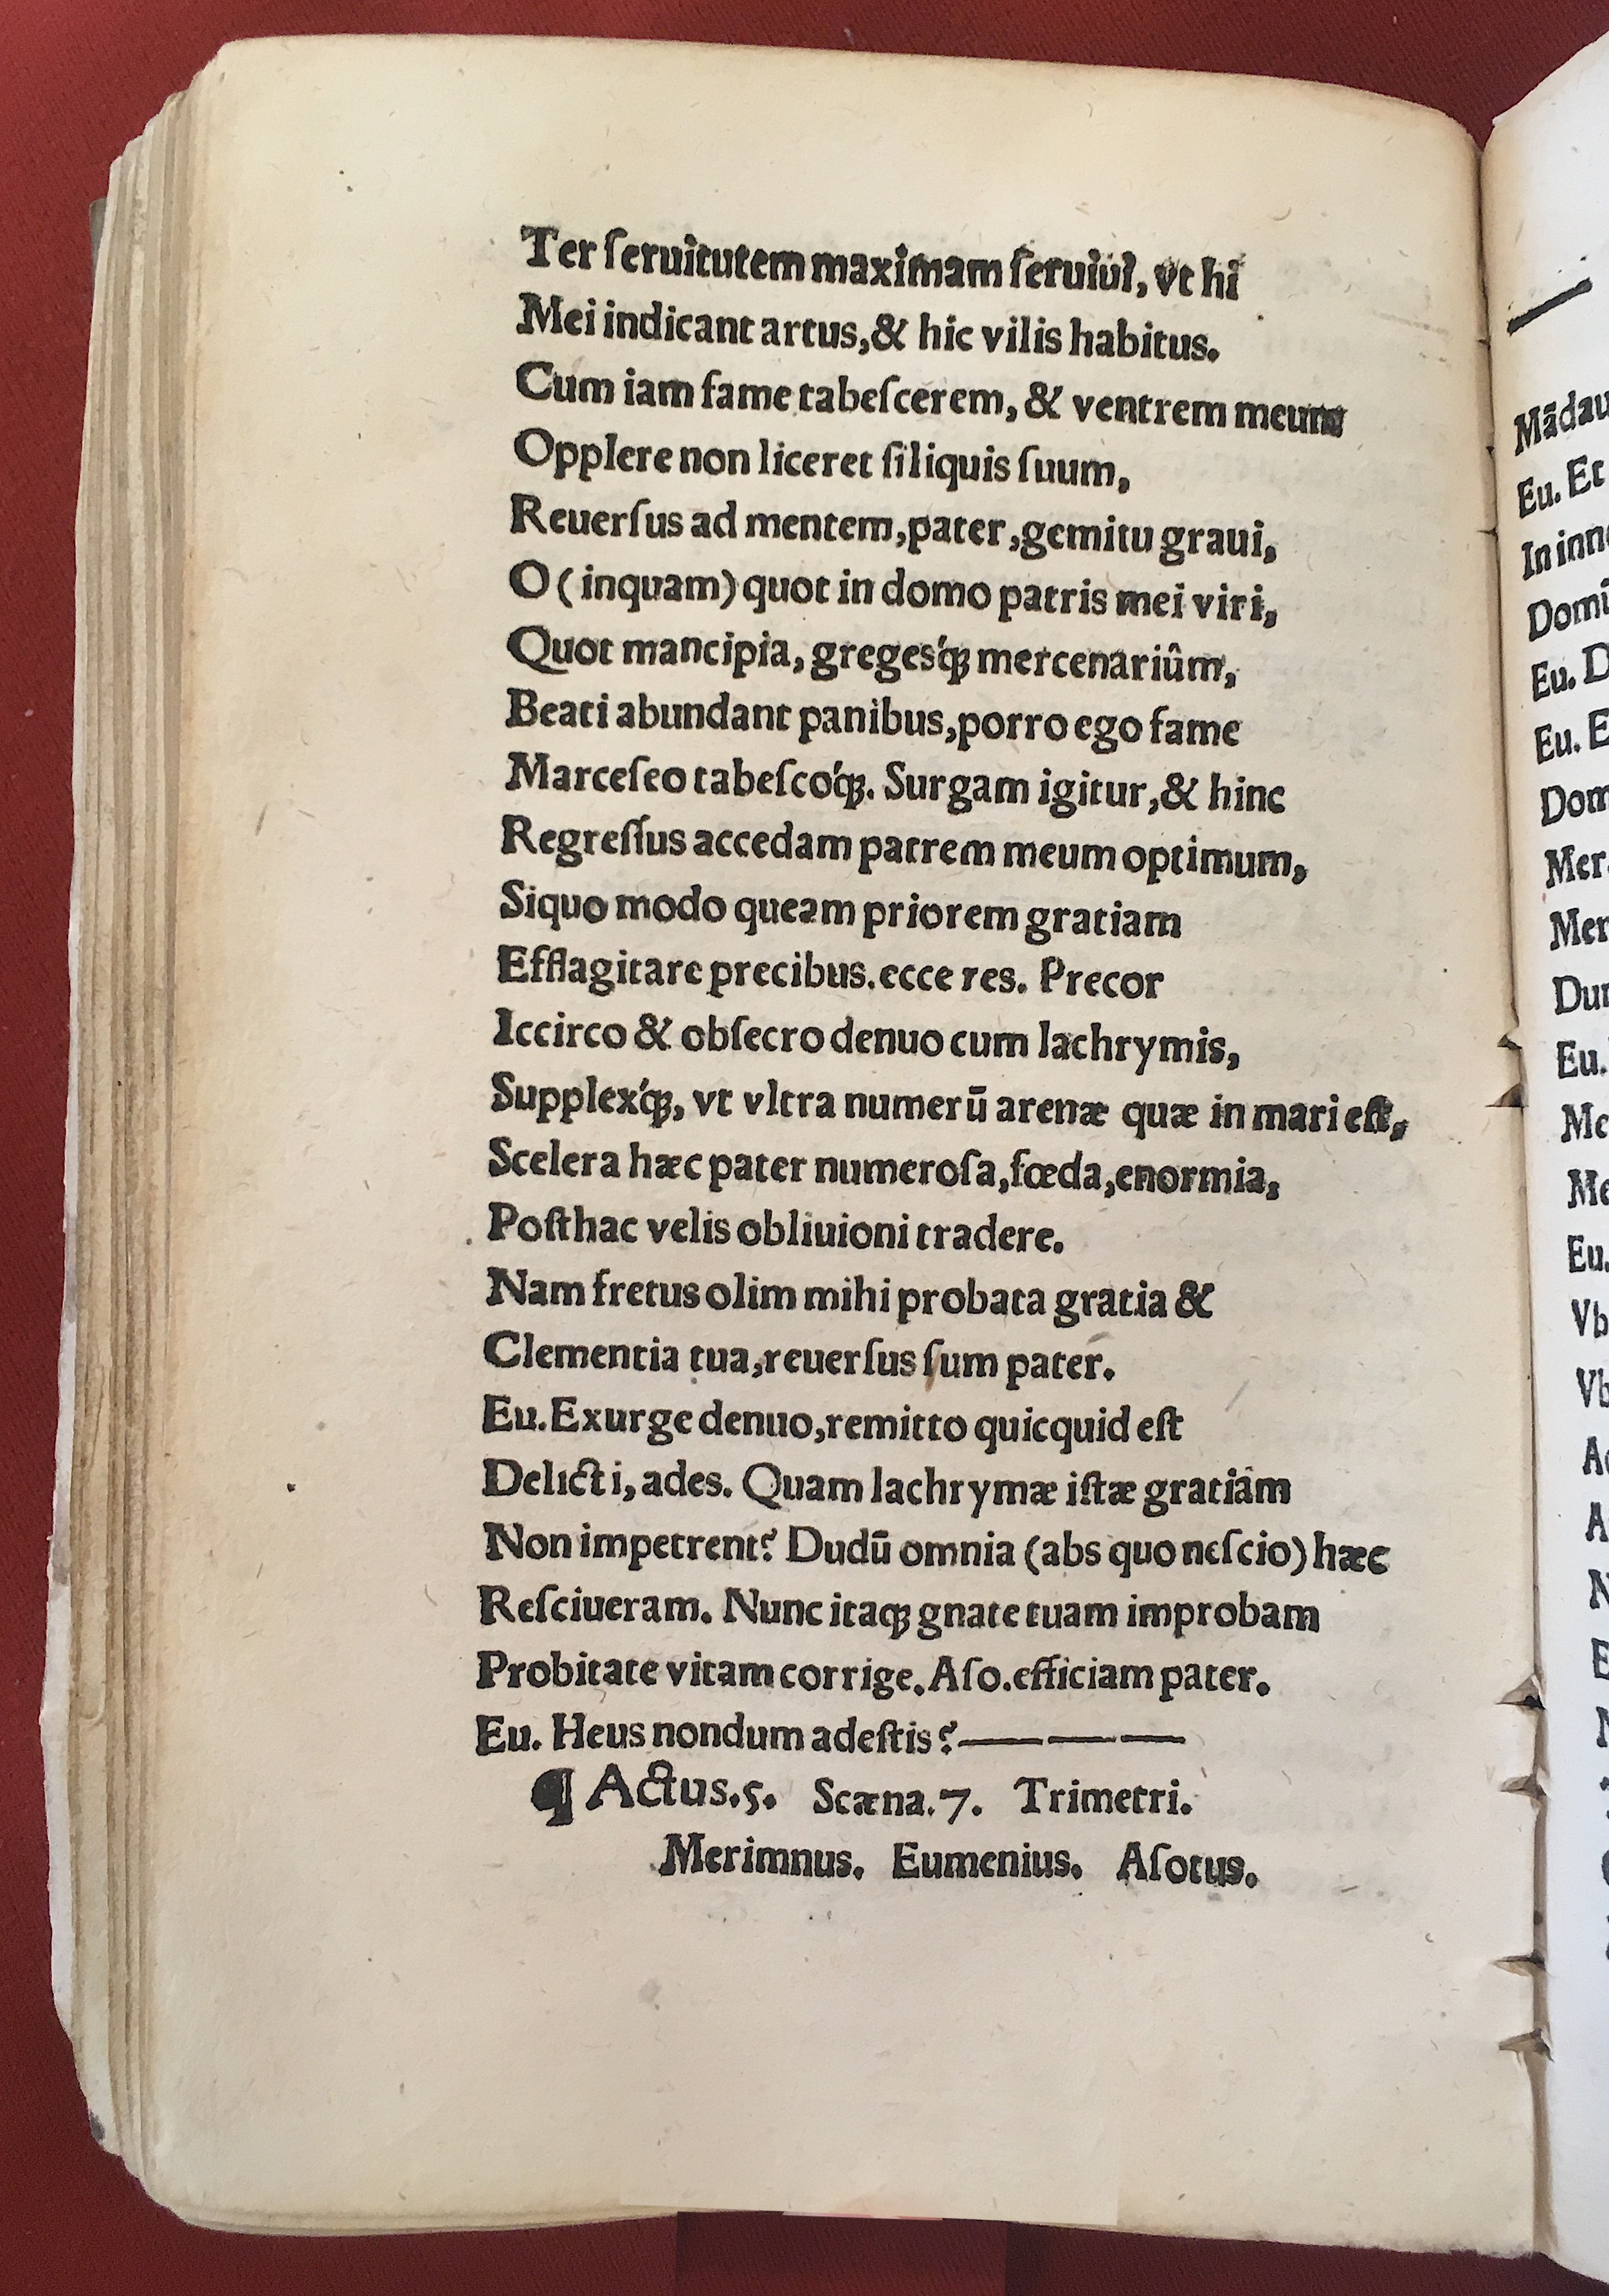 Ter ſeruitutem maximam ſeruiui, vt hi
Mei indicant artus, & hic vilis habitus.
Cum iam fame tabeſcerem, & ventrem meum
Opplere non liceret ſiliquis ſuum,
Reuerſus ad mentem, pater, gemitu graui,
O (inquam) quot in domo patris mei viri,
Quot mancipia, gregesq́ꝫ mercenariûm,
Beati abundant panibus, porro ego fame
Marceſeo tabeſcoq́ꝫ. Surgam igitur, & hinc
Regreſſus accedam patrem meum optimum,
Siquo modo queam priorem gratiam
Efflagitare precibus. ecce res. Precor
Iccirco & obſecro denuo cum lachrymis,
Supplexq́ꝫ, vt vltra numerū arenæ quæ in mari eſt,
Scelera hæc pater numeroſa, fœda, enormia,
Poſthac velis obliuioni tradere.
Nam fretus olim mihi probata gratia &
Clementia tua, reuerſus ſum pater.
Eu. Exurge denuo, remitto quicquid eſt
Delicti, ades. Quam lachrymæ iſtæ gratiam
Non impetrent? Dudū omnia (abs quo neſcio) hæc
Reſciueram. Nunc itaqꝫ gnate tuam improbam
Probitate vitam corrige. Aſo. efficiam pater.
Eu. Heus nondum adeſtis? — — —
¶ Actus. 5. Scæna. 7. Trimetri.
Merimnus. Eumenius. Aſotus.
Mādau
Eu. Et
In inn
Domi
Eu. D
Eu. E
Dom
Mer
Mer
Dur
Eu.
Me
Me
Eu.
Vb
Vb